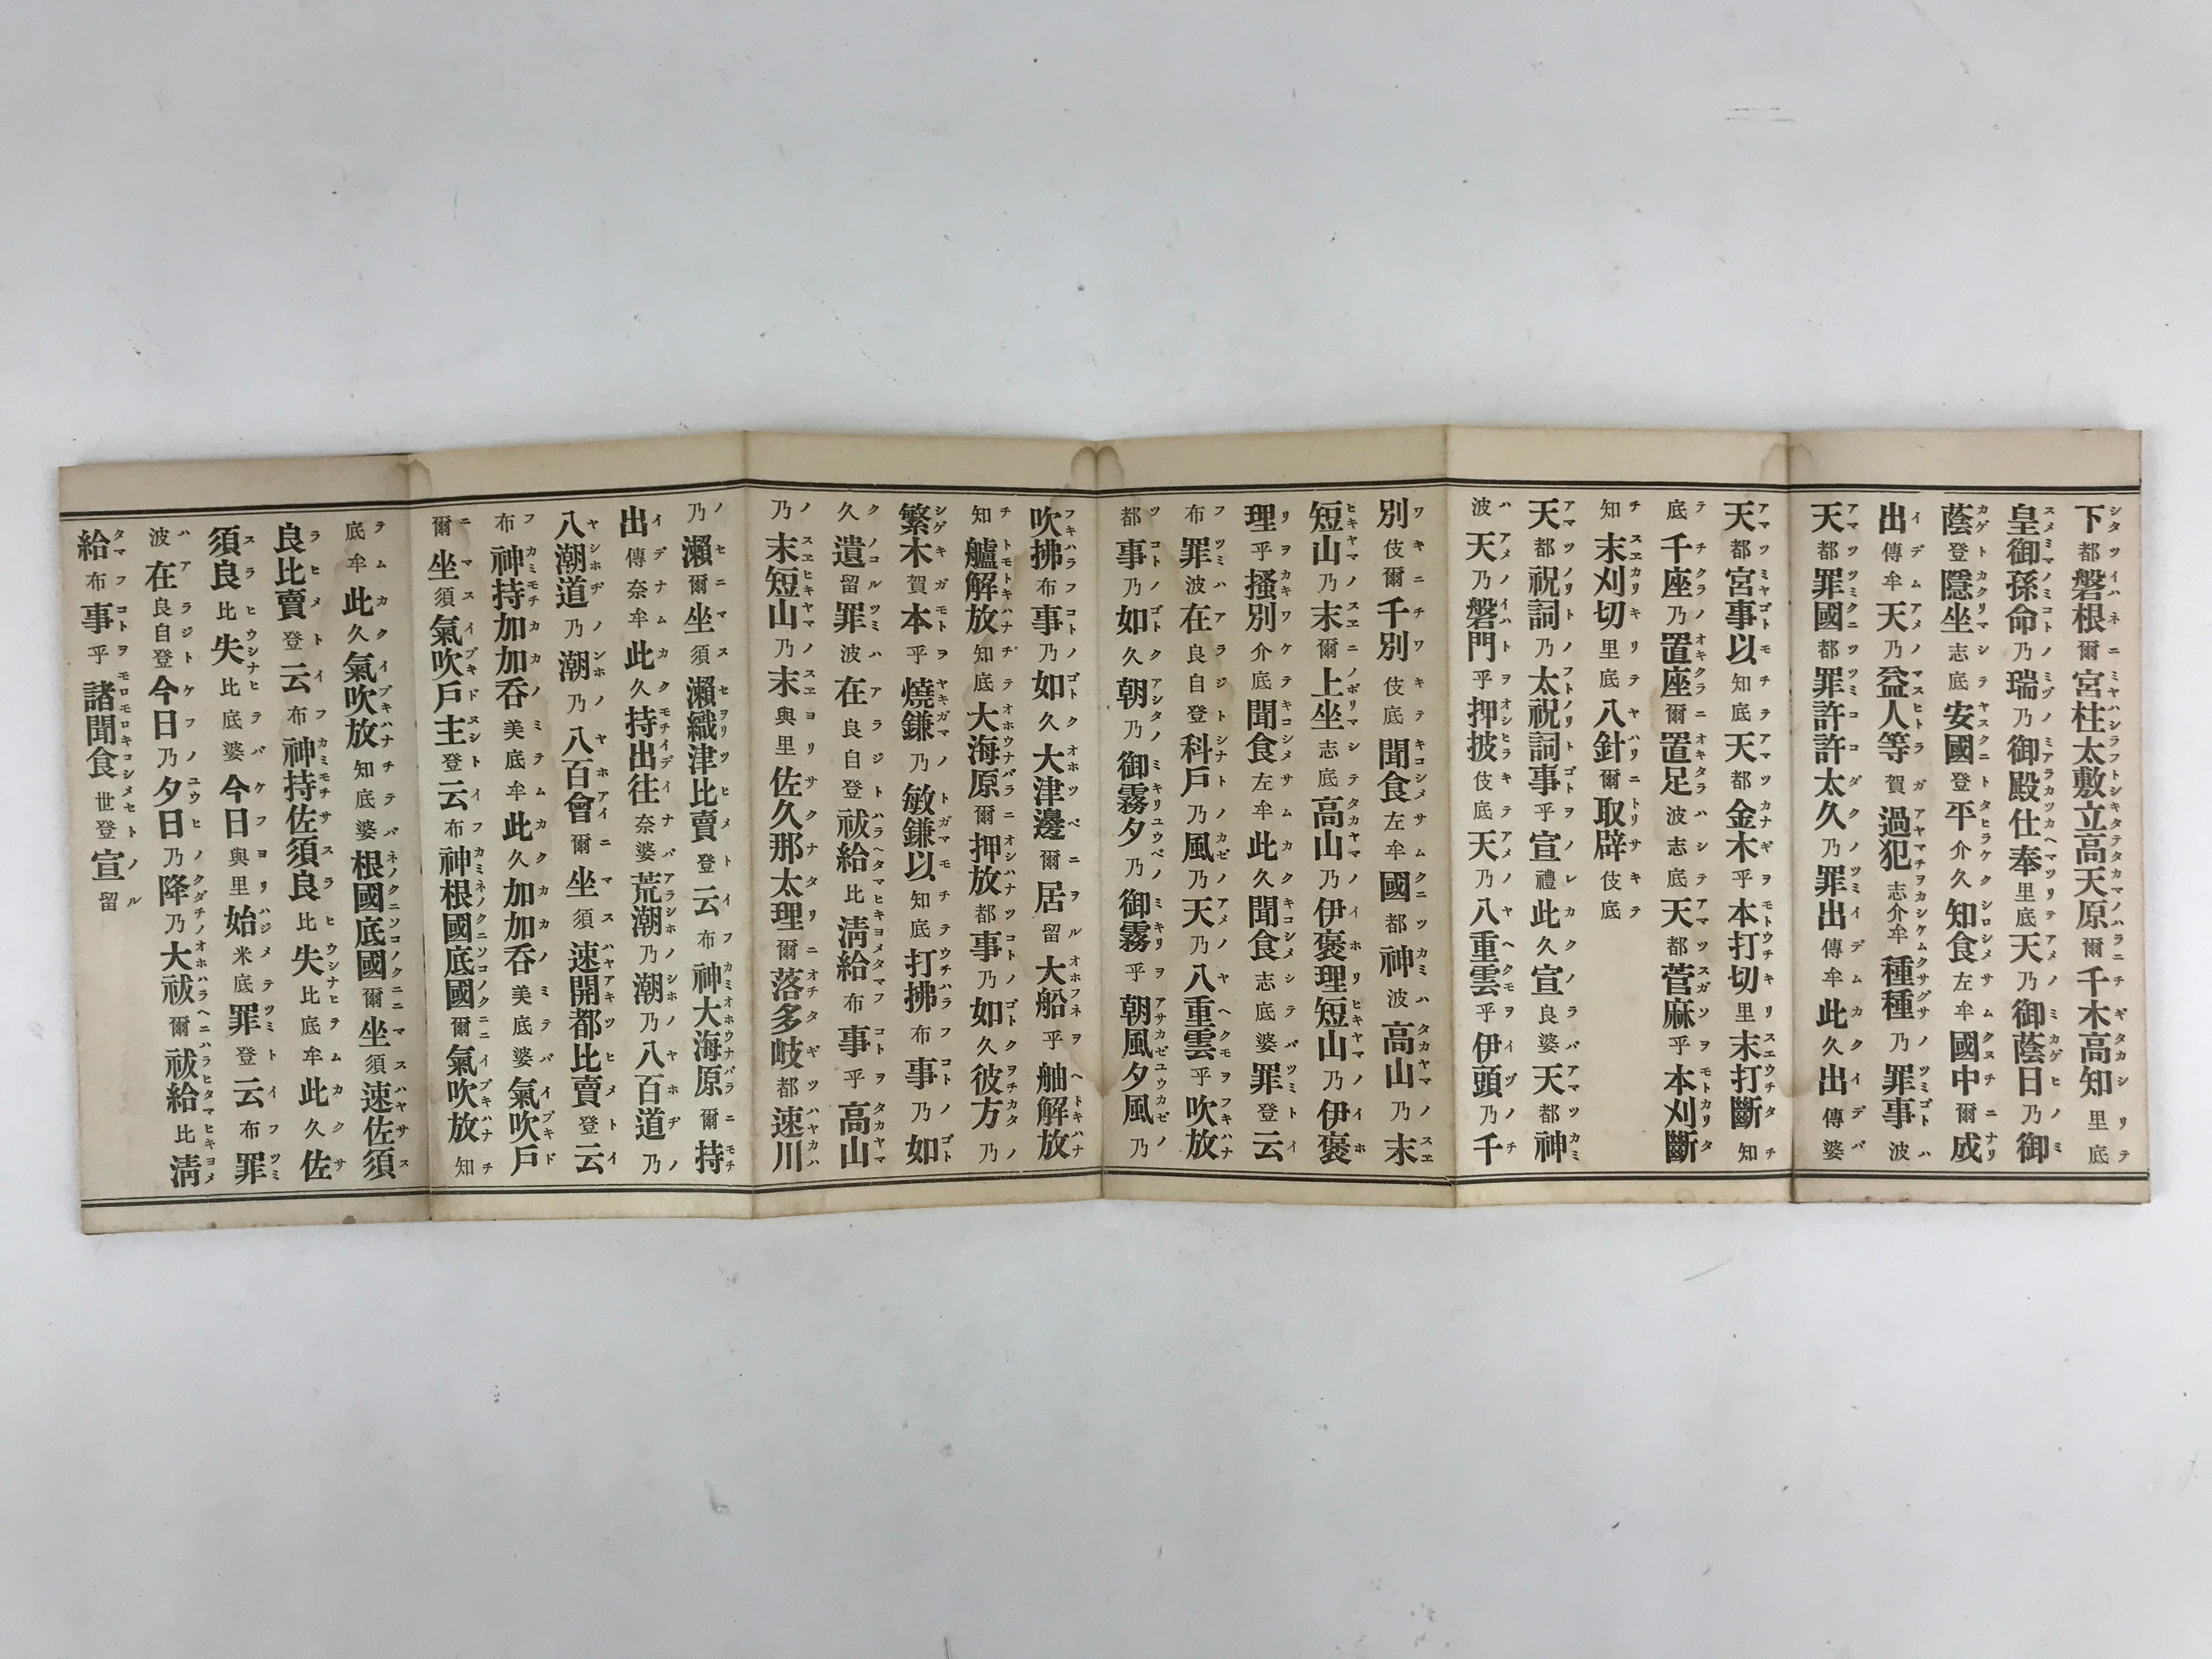 下都磐根爾宮柱太敷立高天原爾千木高知里底
皇御孫命乃瑞乃御殿仕奉里底天乃御蔭日乃御
蔭登隱坐志底安國登平介久知食左牟國中爾成
出傳牟天乃益人等賀過犯志介牟種種乃罪事波
天都罪國都罪許許太久乃罪出傳牟此久出傳婆
天都宮事以知底天都金木乎本打切里末打斷知
底千座乃置座爾置足波志底天都菅麻乎本刈斷
知末刈切里底八針爾取辟伎底
天都祝詞乃太祝詞事乎宣禮此久宣良婆天都神
波天乃磐門乎押披伎底天乃八重雲乎伊頭乃千
別伎爾千別伎底聞食左牟國都神波高山乃末
短山乃末爾上坐志底高山乃伊褒理短山乃伊褒
理乎搔別介底聞食左牟此久聞食志底婆罪登云
布罪波在良自登科戶乃風乃天乃八重雲乎吹放
都事乃如久朝乃御霧夕乃御霧乎朝風夕風乃
吹拂布事乃如久大津邊爾居留大船乎舳解放
知艫解放知底大海原爾押放都事乃如久彼方乃
繁木賀本乎燒鎌乃敏鎌以知底打拂布事乃如
久遺留罪波在良自登祓給比淸給布事乎高山
乃末短山乃末與里佐久那太理爾落多岐都速川
乃瀨爾坐須瀨織津比賣登云布神大海原爾持
出傳奈牟此久持出往奈婆荒潮乃潮乃八百道乃
八潮道乃潮乃八百會爾坐須速開都比賣登云
布神持加加吞美底牟此久加加吞美底婆氣吹戶
爾坐須氣吹戶主登云布神根國底國爾氣吹放知
底牟此久氣吹放知底婆根國底國爾坐須速佐須
良比賣登云布神持佐須良比失比底牟此久佐
須良比失比底婆今日與里始米底罪登云布罪
波在良自登今日乃夕日乃降乃大祓爾祓給比淸
給布事乎諸聞食世登宣留